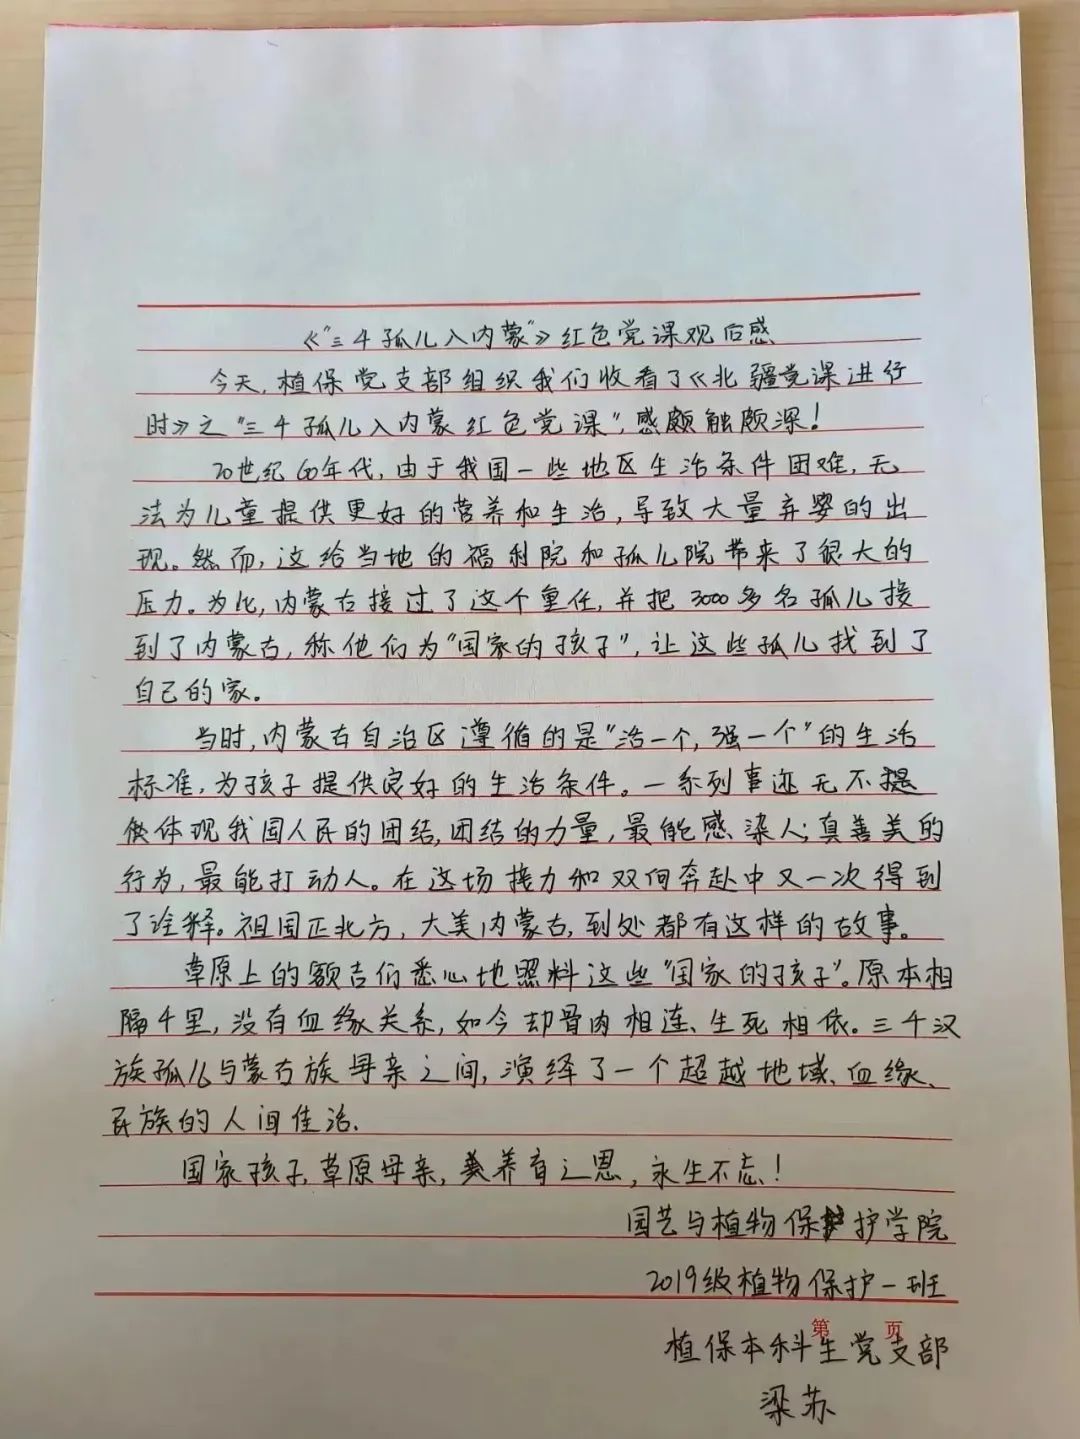 《“三千孤儿入内蒙”》红色党课观后感
今天,植保党支部组织我们收看了《北疆党课进行
时》之“三千孤儿入内蒙红色党课”,感颇触颇深!
20世纪60年代,由于我国一些地区生活条件困难,无
法为儿童提供更好的营养和生活,导致大量弃婴的出
现。然而,这给当地的福利院和孤儿院带来了很大的
压力。为此,内蒙古接过了这个重任,并把3000多名孤儿接
到了内蒙古,称他们为“国家的孩子”,让这些孤儿找到了
自己的家。
当时,内蒙古自治区遵循的是“活一个,强一个”的生活
标准,为孩子提供良好的生活条件。一系列事迹无不提
供体现我国人民的团结,团结的力量,最能感染人;真善美的
行为,最能打动人。在这场接力和双向奔赴中又一次得到
了诠释。祖国正北方,大美内蒙古,到处都有这样的故事。
草原上的额吉们悉心地照料这些“国家的孩子”。原本相
隔千里,没有血缘关系,如今却骨肉相连、生死相依。三千汉
族孤儿与蒙古族母亲之间,演绎了一个超越地域、血缘、
民族的人间佳话.
国家孩子,草原母亲,养育之恩,永生不忘!
园艺与植物保护学院
2019级植物保护一班
第 页
植保本科生党支部
梁苏